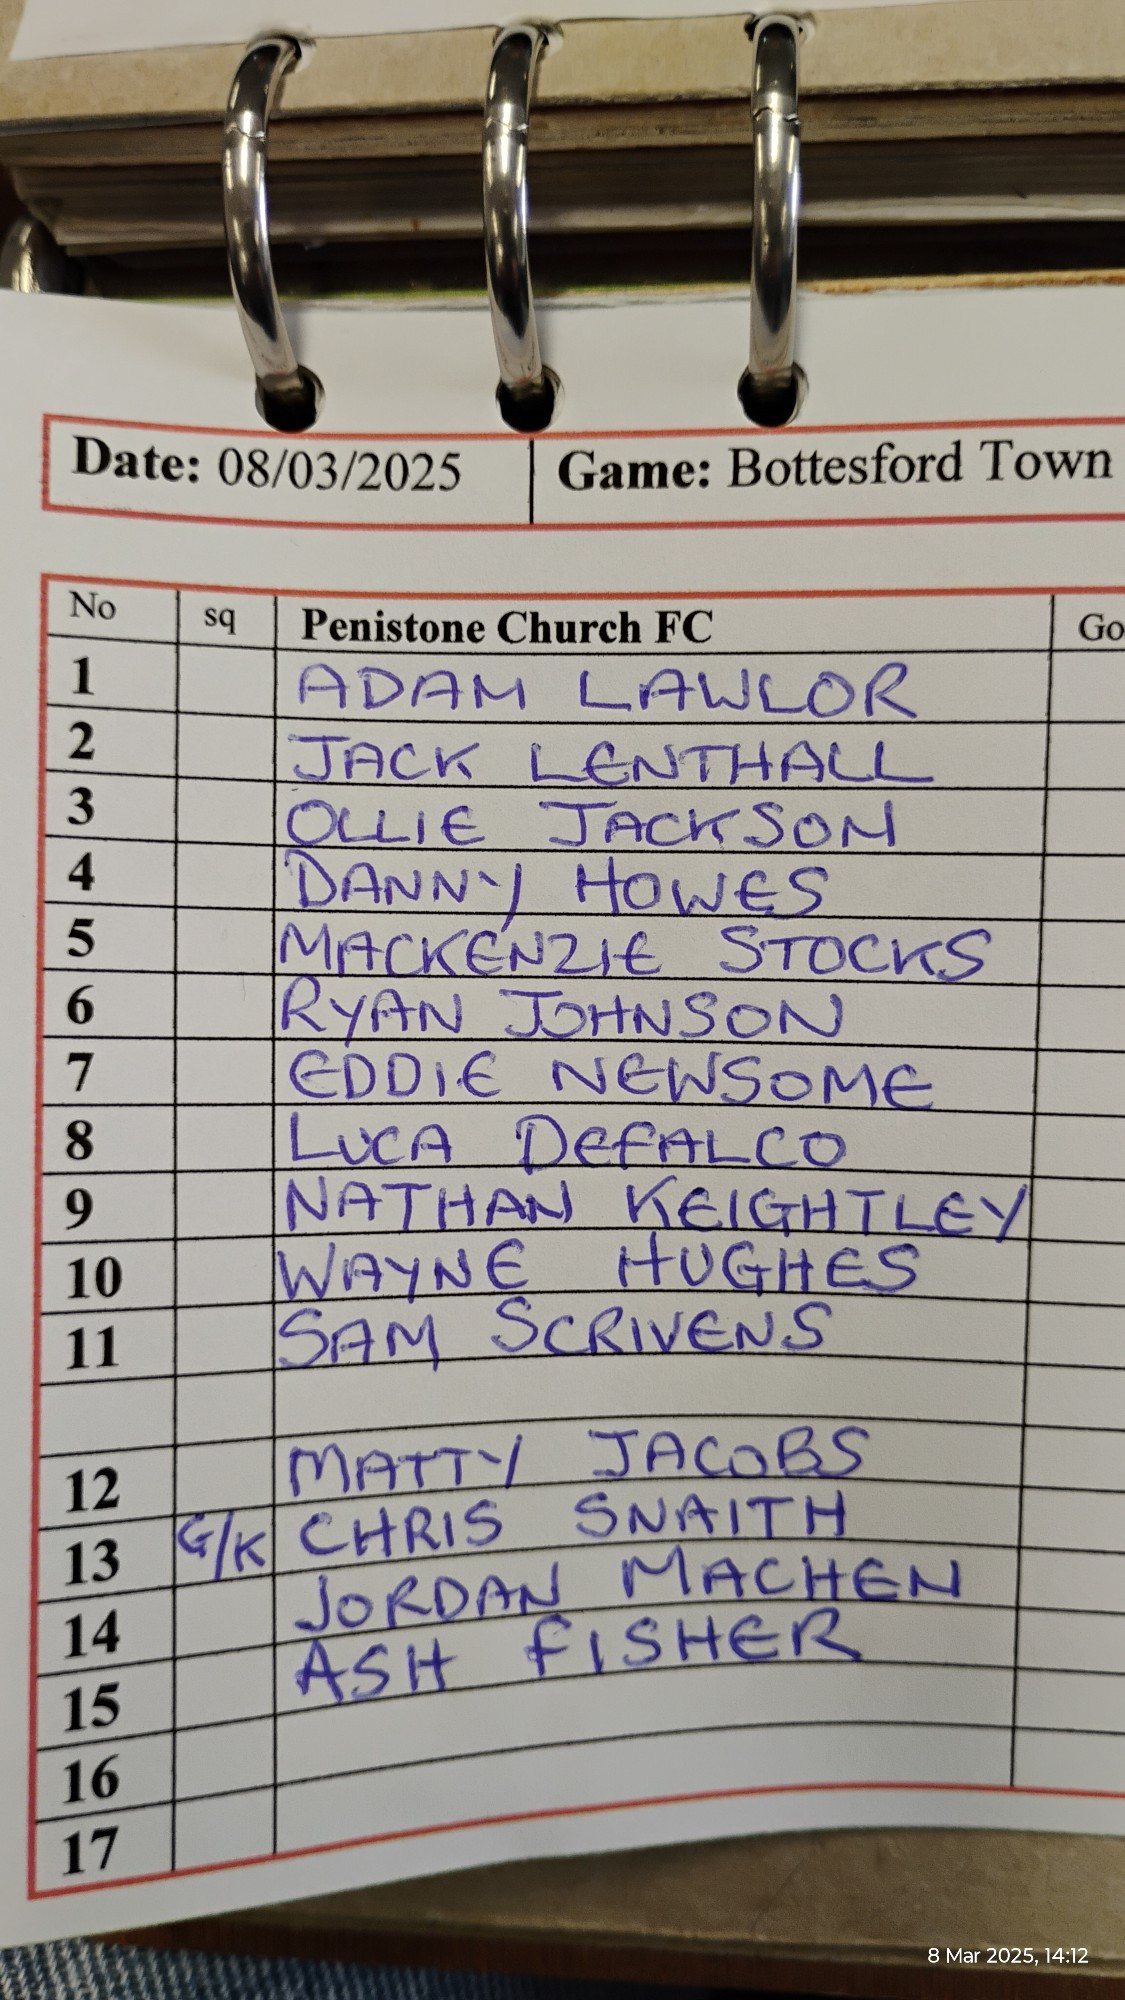 Date: 08/03/2025 Game: Bottesford Town
No sq Penistone Church FC Go
1 ADAM LAWLOR
2 JACK LENTHALL
3 OLLIE JACKSON
4 DANNY HOWES
5 MACKENZIE STOCKS
6 RYAN JOHNSON
7 EDDIE NEWSOME
8 LUCA DEFALCO
9 NATHAN KEIGHTLEY
10 WAYNE HUGHES
11 SAM SCRIVENS
12 MATTY JACOBS
13 G/K CHRIS SNAITH
14 JORDAN MACHEN
15 ASH FISHER
16
17
8 Mar 2025, 14:12